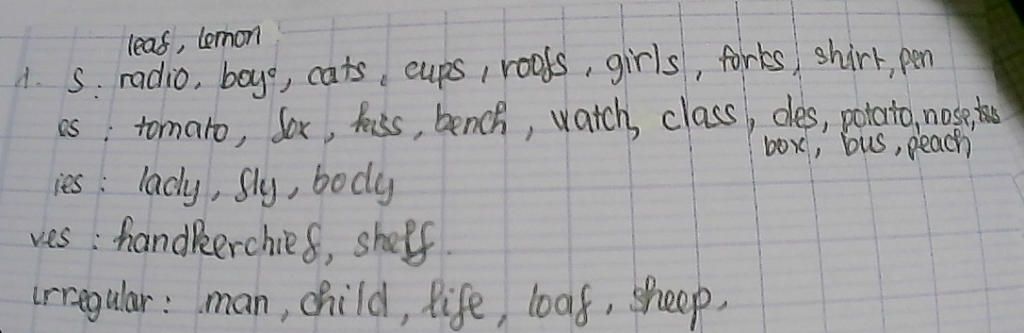 leaf, lemon
1. s: radio, boys, cats, cups, roofs, girls, forks, shirt, pen
es: tomato, fox, kiss, bench, watch, class, des, potato, nose, bus
box, bus, peach
ies: lady, fly, body
ves: handkerchief, shelf.
irregular: man, child, life, loaf, sheep.